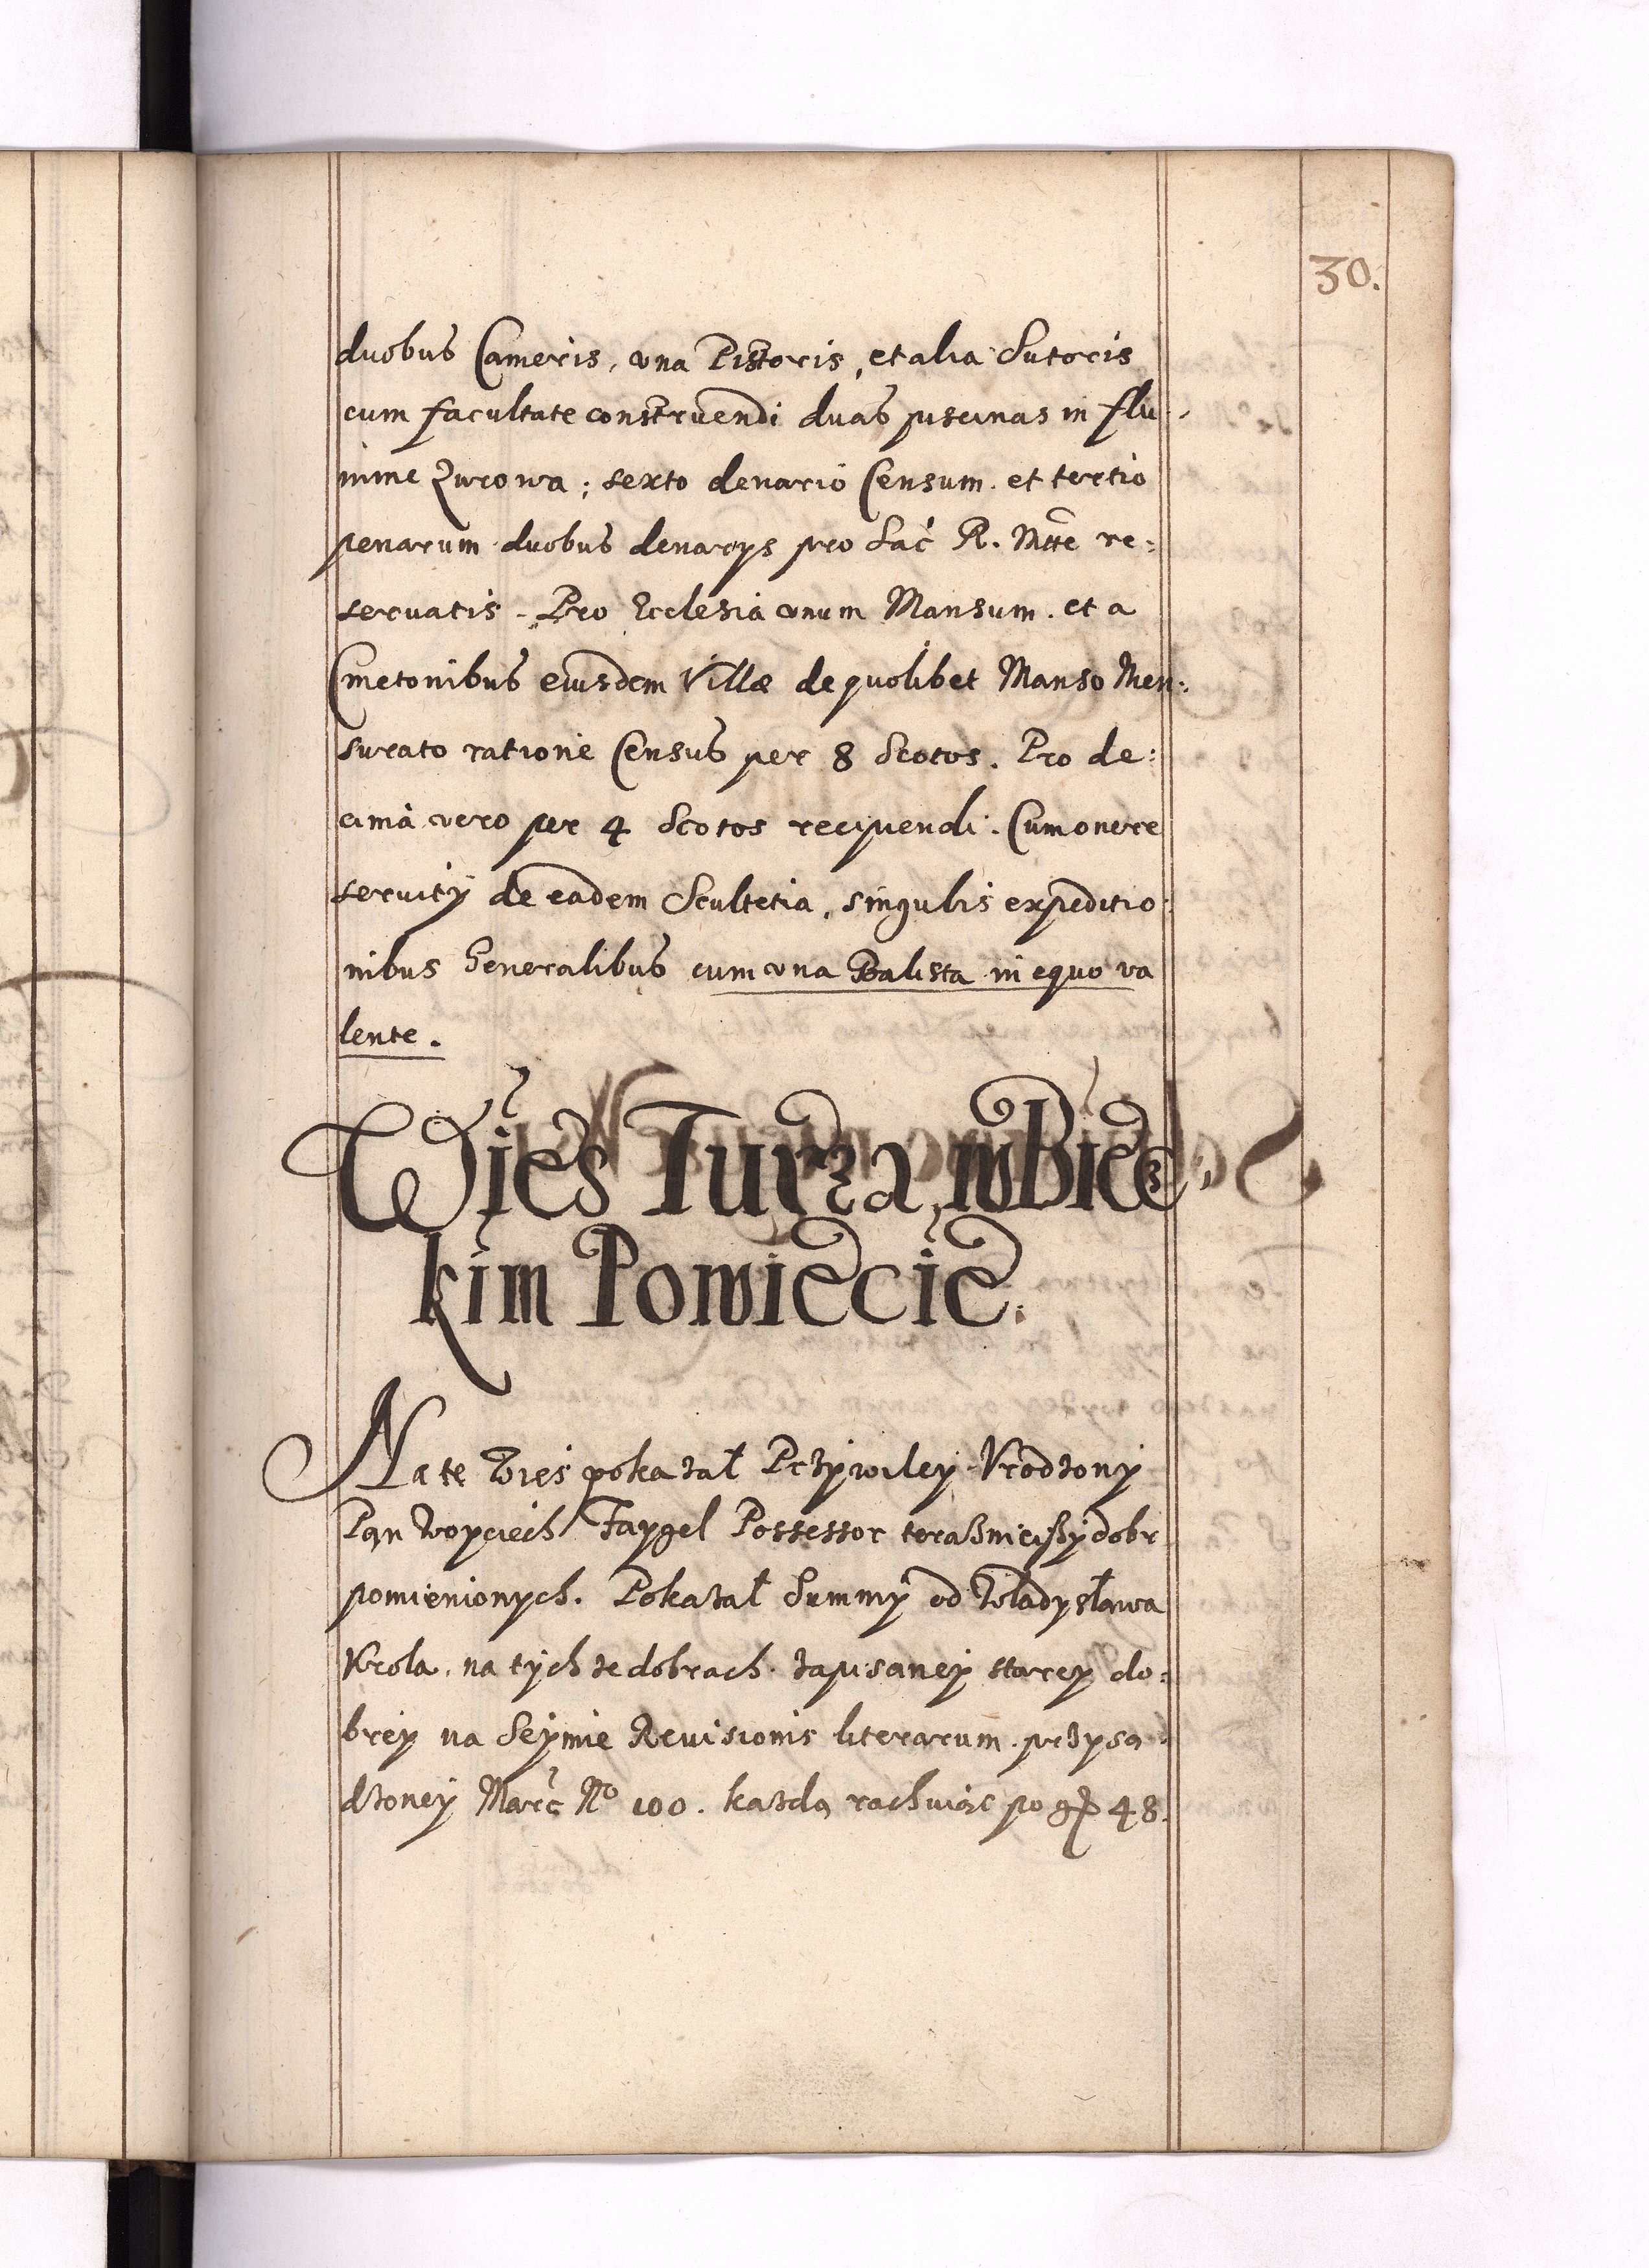 30.
duobus Cameris, una Pistoris, et alia Sutoris
cum facultate construendi duas piscinas in flu-
mine Zurowa; sexto denario Censum. et tertio
penarum duobus denarys pro Sac̃ R. Mtte re:
seruatis. Pro Ecclesia unum Mansum. et a
Cmetonibus eiusdem Villæ de quolibet Manso Men:
surato ratione Census per 8 Scotos. Pro de:
cimà vero per 4 Scotos recipiendi. Cum onere
seruitÿ de eadem Scultetia, singulis expeditio:
nibus Generalibus cum una Balista in equo va
lente.
Wies Turza, w Biecz,
kim Powiecie.
Na te Wieś pokazał Przywiley Vrodzony
Pan Woyciech Faygel Possessor teraßnieyßy dobr
pomienionych. Pokazał Summy od Władysława
Krola, na tych ze dobrach. zapisaney starey do:
brey na Seymie Revisionis literarum. przysą:
dzoney Marc̃ No 100. kazdą rachuiąc po gr 48.